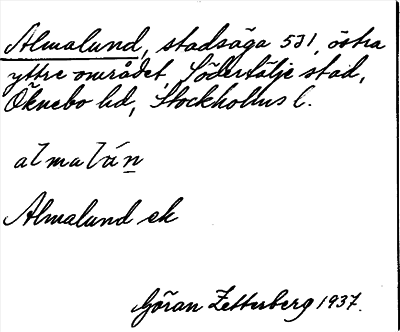 Almalund, stadsäga 531, östra
yttre området, Södertälje stad,
Öknebo hd, Stockholms l.
almalán
Almalund ek
Göran Zetterberg 1937.